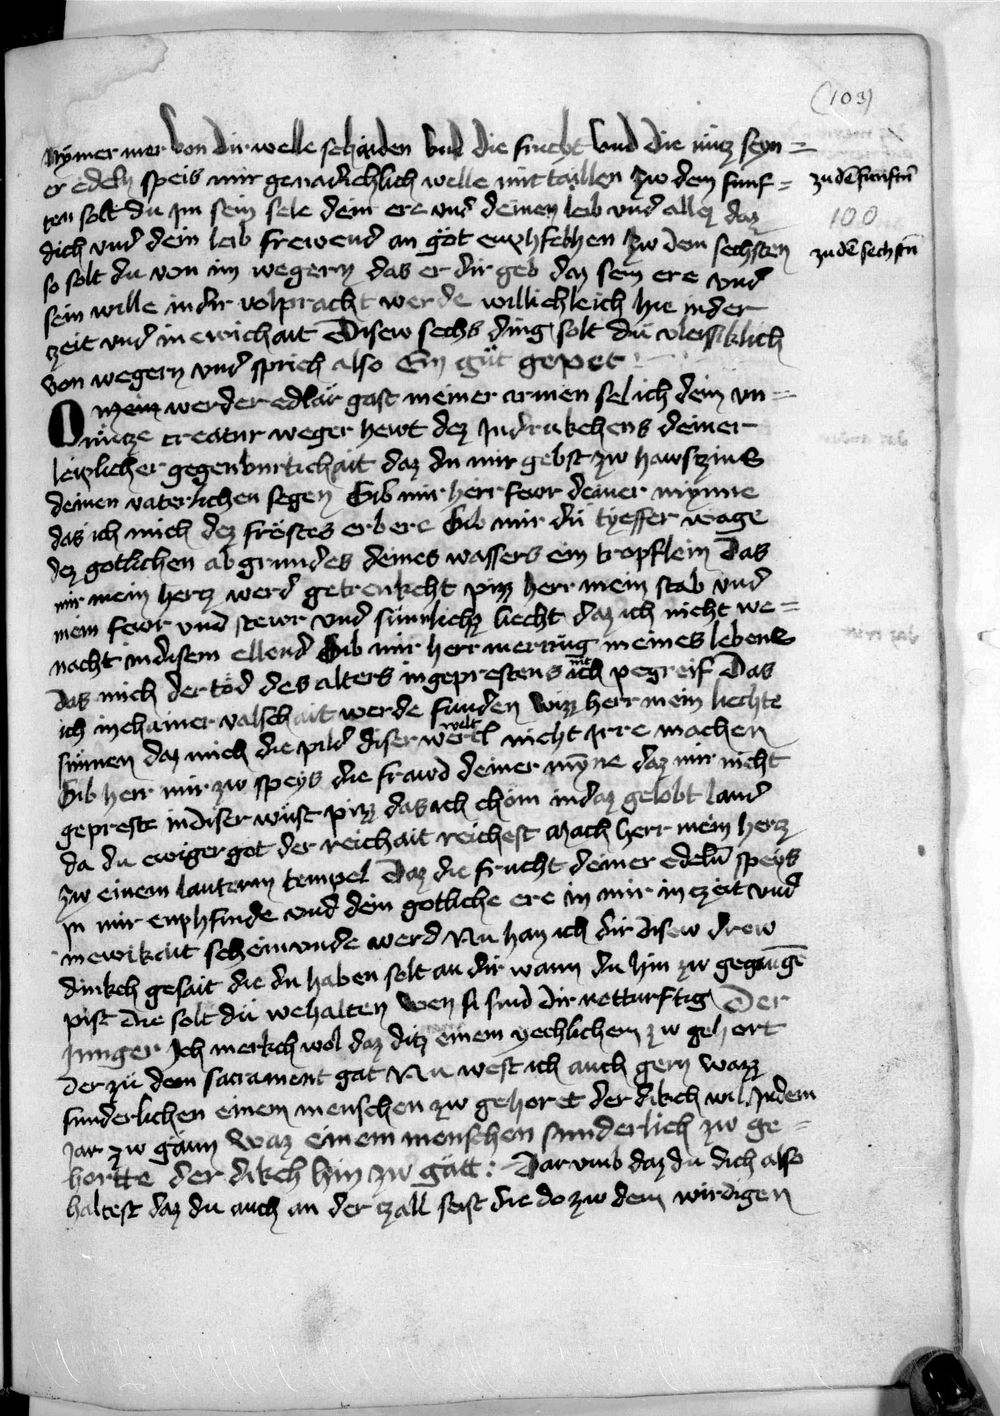 (103)
Nymer mer von dir welle schaiden Vnd die frucht Vnd die nücz seyn =
er edeln speis mir genadichlich welle mit taillen Zw dem funf =
zu dē funftñ
ten solt du jm sein sele dein ere vnd deinen leib vnd allez daz
100
dich vnd dein leib frewend an got enphfelhen Zw dem sechsten
zu dē sechstñ
so solt du von im wegern das er dir geb daz sein ere vnd
sein wille in dir volpracht werde willichleich hie in der
zeit vnd in ewichait Disew sechs ding solt du vleissiklich
von wegern vnd sprich also Ein güt gepet
O mein werder edlär gast meiner armen sel ich dein vn =
nücze creatur weger hewt dez Indrukchens deiner
leizlicher gegenburtichait daz du mir gebst zw hawszins
deinen vaterlichen segen Gib mir herr fewr deiner mynne
das ich mich dez fröstes erbere Gib mir dü tyeffer wage
dez gotlichen abgrundes deines wassers ein tropflein Das
mir mein hertz werd getrenkcht pizz herr mein stab vnd
mein fewr vnd stewr vnd sünnlichz liecht daz ich nicht we =
nacht in disem ellend Gib mir herr merrüg meines lebens
Das mich der töd des alters in geprestens nit ich pegreif Das
ich in chainer valschait werde funden Wizz herr mein liechte
sunnen daz mich die pild diser werlt welt nicht Irre machen
Gib herr mir zw speys die frawd deiner mÿne daz mir nicht
gepreste in diser wüst pizz das ich chöm in daz gelobt land
da du ewiger got der reichait reichest Mach herr mein hertz
zw einem lauterm tempel Daz die frucht deiner edelñ speys
In mir enphfinde vnd dein gotliche ere in mir in czeit vnd
in ewikait schein vnde werd Nu han ich dir disew drew
dinkch gesait die du haben solt an dir wann du hin zw gegangē
pist Die solt dü wehalten Wen si sind dir notturftig Der
Junger Ich merkch wol daz ditz einem yechlichem zw gehort
Der zü dem sacrament gat Nu west ich auch gern wazz
sunderlichen einem menschen zw gehoret der dikch wil In dem
Jar zw gänn Waz einem menschen sunderlich zw ge =
hortte der dikch hin zw gätt : Dar vmb daz du dich also
haltest daz du auch an der czall seist die do zw dem wirdigen